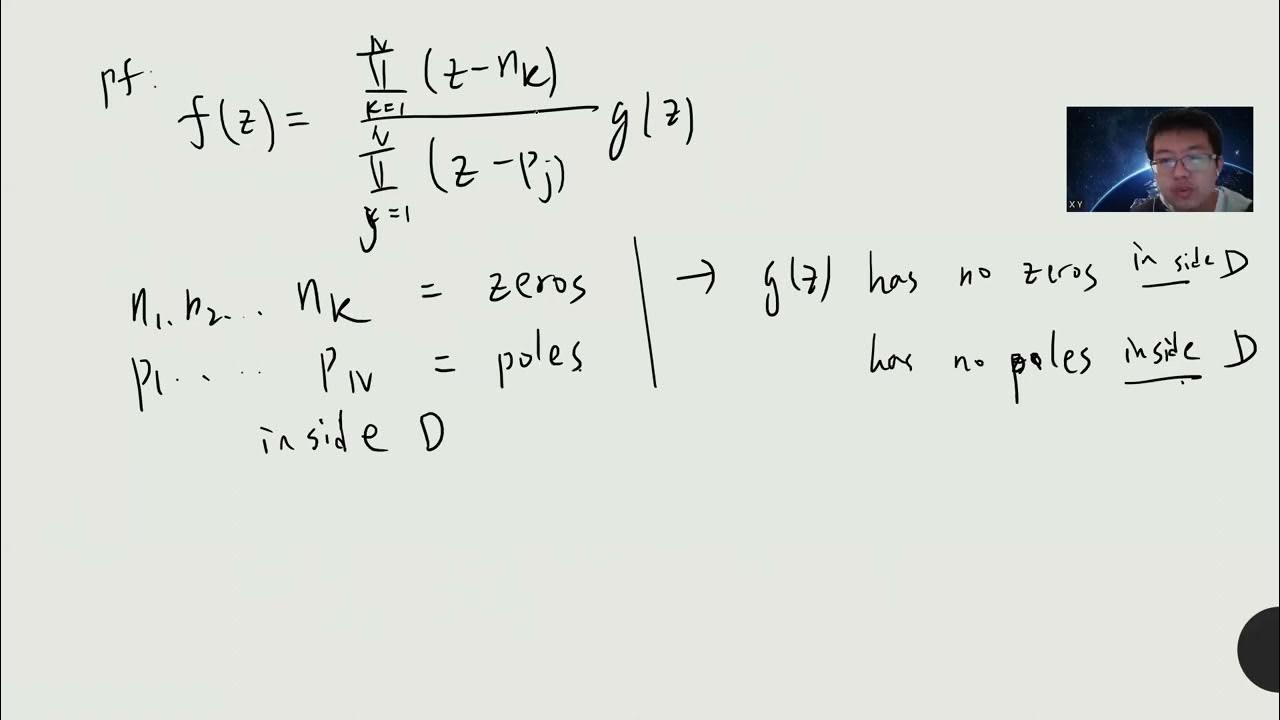 pf:
f(z) = \frac{\prod_{k=1}^{N} (z-n_k)}{\prod_{j=1}^{N} (z-p_j)} g(z)
n_1, n_2, ... n_k = zeros
p_1 .... p_N = poles
inside D
→ g(z) has no zeros inside D
has no poles inside D
X Y